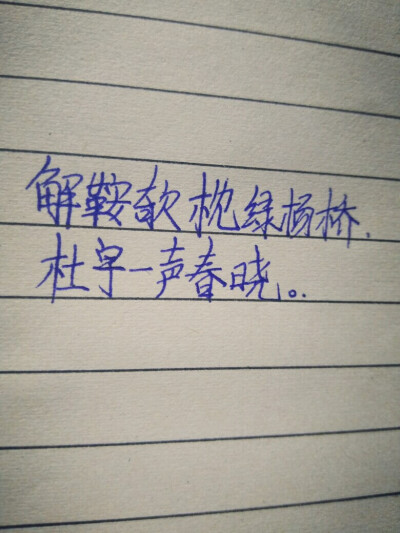 解鞍欹枕绿杨桥.
杜宇一声春晓。.